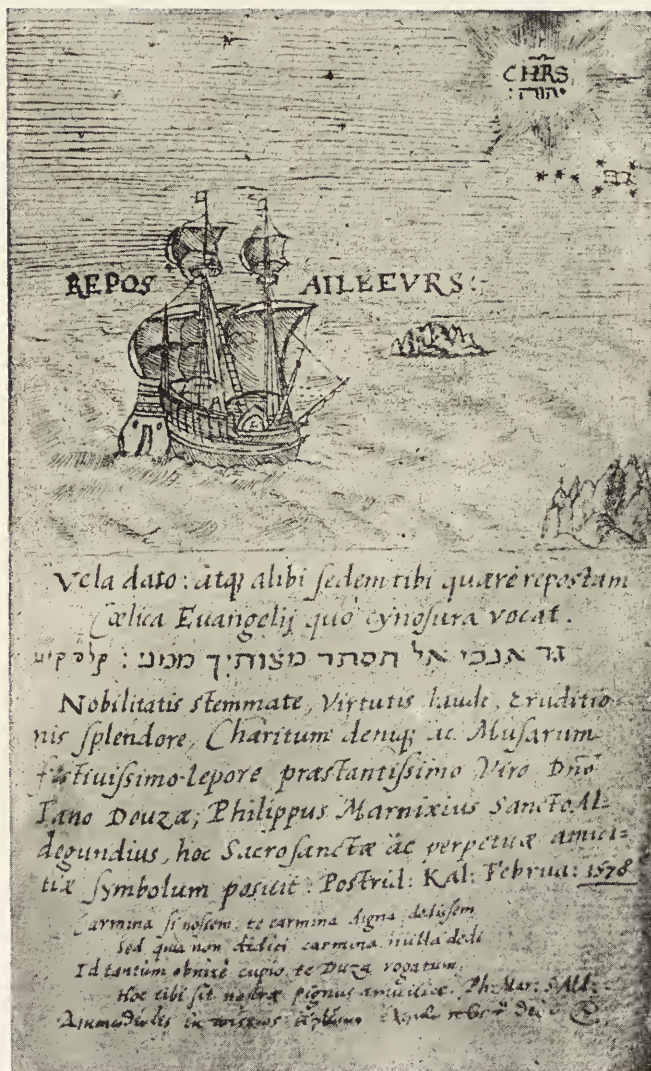 CHRS
יהוה:
REPOS AILLEVRS:
Vela dato: atq; alibi sedem tibi quære repostam
Cœlica Euangelij quò cynosura vocat.
גר אנכי אל תסתר ממני מצותיך :
Nobilitatis stemmate, Virtutis laude, Eruditio-
nis splendore, Charitum denq; ac Musarum
festiuissimo lepore præstantissimo Viro Dño
Iano Douzæ; Philippus Marnixius Sancto Al-
degundius, hoc Sacrosanctæ ac perpetuæ amici-
tiæ symbolum posuit. Postrid: Kal: Februa: 1578
Carmina si nossem, te carmina digna dedissem
Sed quia non didici carmina nulla dedi
Id tantum obnixè cupio te Duza rogatum
Hoc tibi sit nostræ pignus amicitiæ. Ph. Mar: S. Ald: